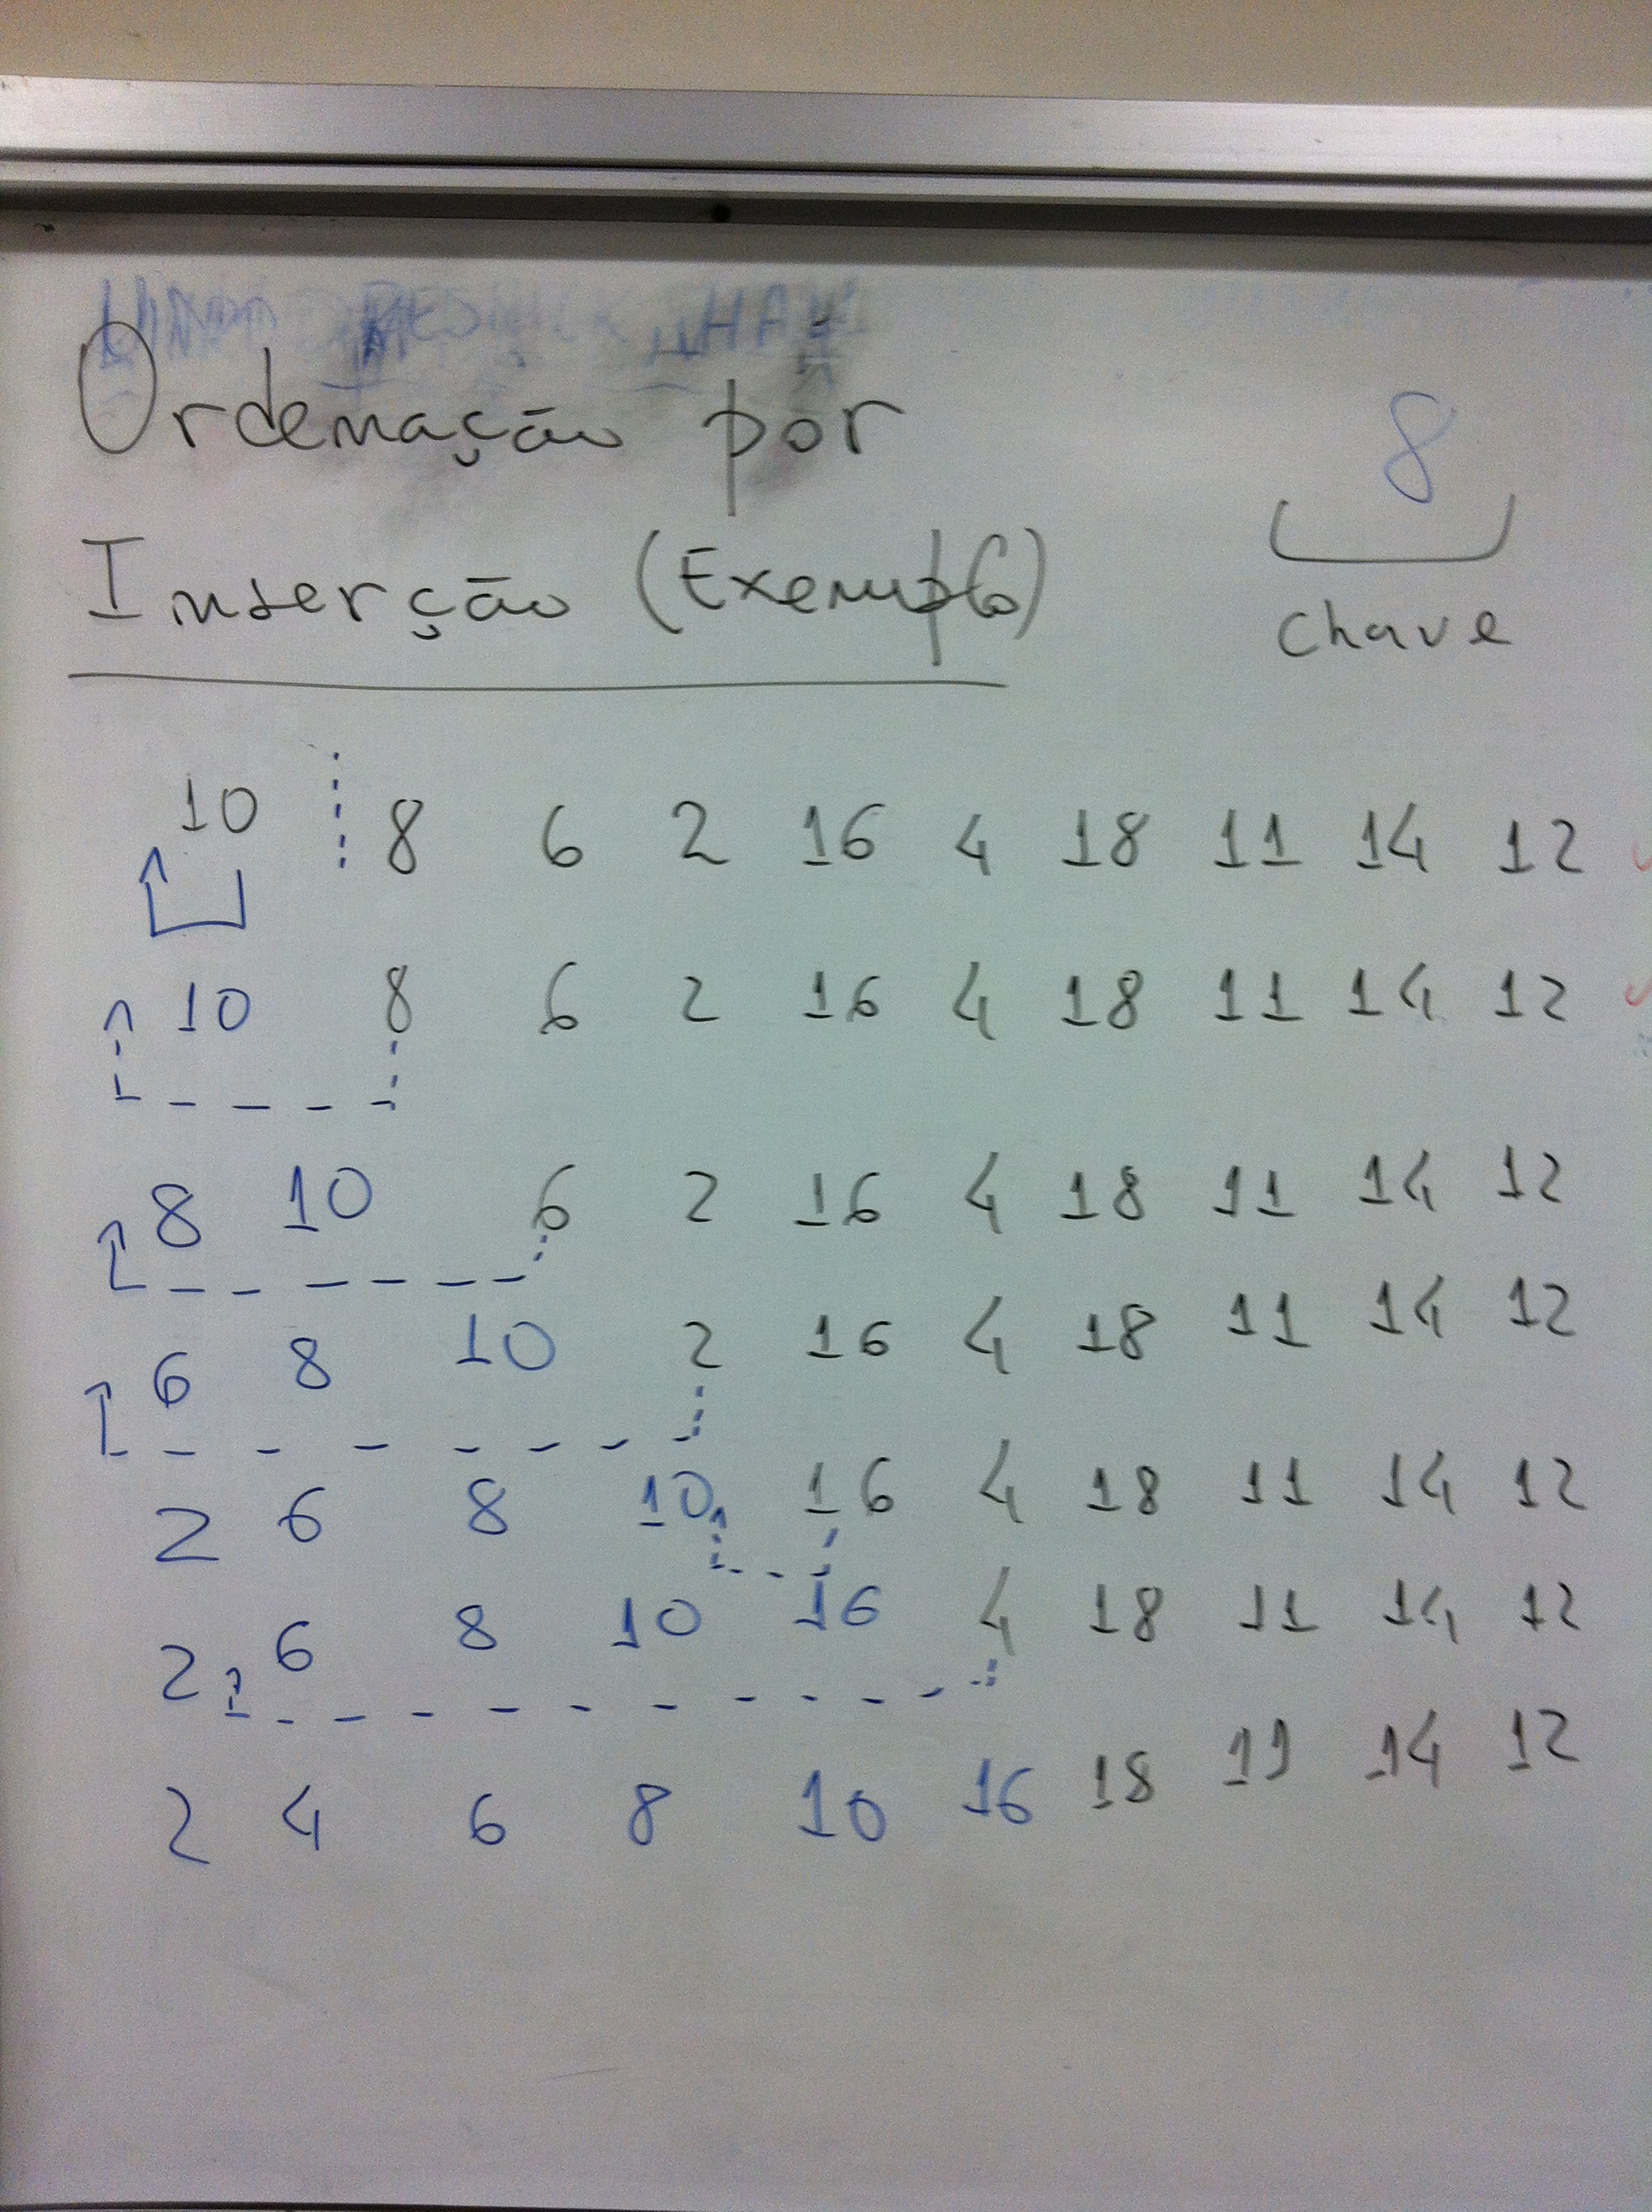 Ordenação por
Inserção (Exemplo)
8
chave
10 8 6 2 16 4 18 11 14 12
10 8 6 2 16 4 18 11 14 12
8 10 6 2 16 4 18 11 14 12
6 8 10 2 16 4 18 11 14 12
2 6 8 10 16 4 18 11 14 12
2 6 8 10 16 4 18 11 14 12
2 4 6 8 10 16 18 11 14 12